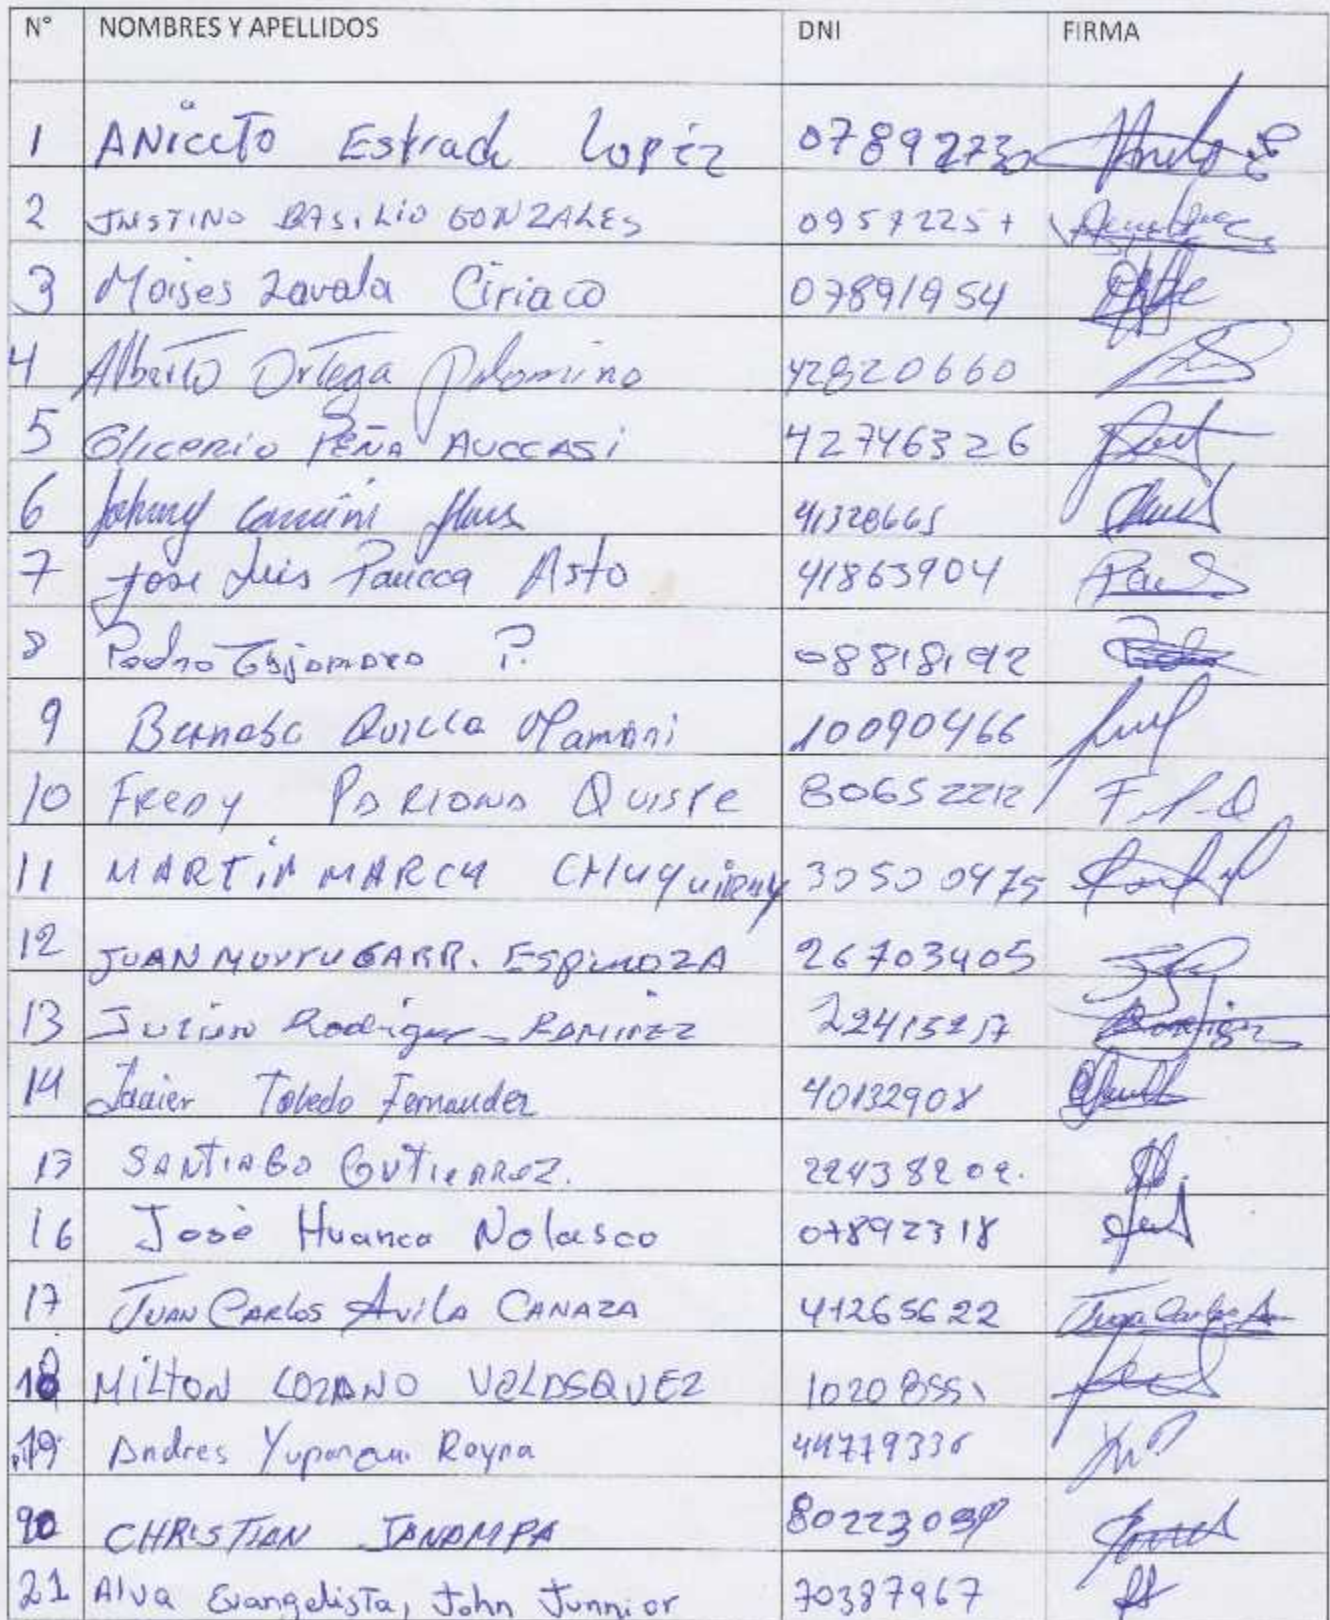 N° NOMBRES Y APELLIDOS DNI FIRMA
1 ANiceTo Estrada Lopéz 07892730
2 JUSTINO BASILIO GONZALES 09572257
3 Moises Zavala Ciriaco 07891954
4 Alberto Ortega Palomino 42820660
5 Glicerio PEÑA AUCCASi 42746326
6 Johnny 41328665
7 Jose Luis Paucca Asto 41863904
8 Pedro P. 08818192
9 Bernabe Quilla Mamani 10090466
10 FREDY PARIONA QUISPE 80652212 F.P.Q
11 MARTIN MARCA 30500475
12 JUAN ESPINOZA 26703405
13 Julian Rodriguez RAMIREZ 22415257 Rodriguez
14 Javier Toledo Fernandez 40132908
15 SANTIAGO GUTIERREZ. 22438202.
16 José Huanca Nolasco 07892318
17 JUAN CARLOS AviLA CANAZA 41265622 Juan Carlos A
18 MiLTON LOZANO VELASQUEZ 10208551
19 Andres Yupanqui Reyna 44779336
20 CHRISTIAN JANAMPA
21 Alva Evangelista, John Junnior 70387967